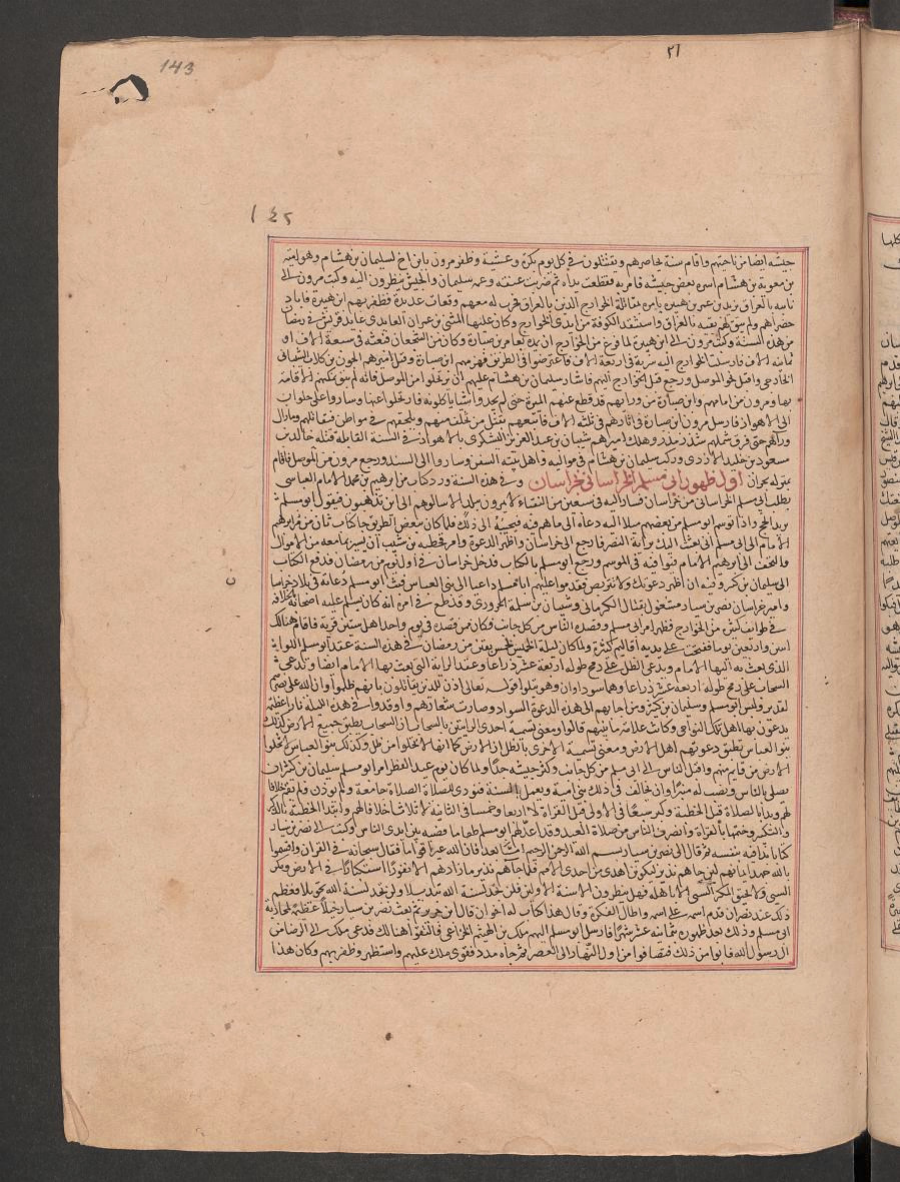 143
٢١
١٤٢
جيشه ايضا من ناحيتهم واقام سنة يحاصرهم ويقتتلون في كل يوم بكرة وعشية وظفر مرون بابن اخ لسليمان بن هشام وهو امية
بن معوية بن هشام اسره بعض جيشه فامر به فقطعت يداه ثم ضربت عنقه وعمه سليمان والجيش ينظرون اليه وكتب مرون الى
نايبه بالعراق يزيد بن عمر بن هبيرة يامره بمقاتلة الخوارج الذين بالعراق فجرت له معهم وقعات عديدة فظفر بهم ابن هبيرة فاباد
خضراهم ولم يبق لهم بقية بالعراق واستنقذ الكوفة من ايدى الخوارج وكان عليها المثنى بن عمران العايدى عايدة قريش في رمضان
من هذه السنة وكتب مرون الى ابن هبيرة لما فرغ من الخوارج ان يمده بعامر بن صبارة وكان من الشجعان فبعثه في سبعة الاف او
ثمانية الاف فارسلت الخوارج اليه سرية في اربعة الاف فاعترضوا في الطريق فهزمهم ابن صبارة وقتل اميرهم الجون بن كلاب الشيبانى
الخارجى واقبل نحو الموصل ورجع فل الخوارج اليهم فاشار سليمان بن هشام عليهم ان يرتحلوا من الموصل فانه لم يبق يمكنهم الاقامة
بها ومرون من امامهم وابن صبارة من ورايهم قد قطع عنهم الميرة حتى لم يجدوا شيا ياكلونه فارتحلوا عنها وساروا على حلوان
الى الاهواز فارسل مرون ابن صبارة في اثارهم في ثلثة الاف فاتبعهم يقتل من تخلف منهم ويلحقهم في مواطن فيقاتلهم ومازال
وراهم حتى فرق شملهم شذر مذر وهلك اميرهم شيبان بن عبد العزيز اليشكرى بالاهواز في السنة القابلة قتله خالد بن
مسعود بن خليد الازدى وركب سليمان بن هشام في مواليه واهل بيته السفن وساروا الى السند ورجع مرون من الموصل فاقام
بمنزله بحران اول ظهور ابى مسلم الخراسانى بخراسان وفي هذه السنة ورد كتاب من ابرهيم بن محمد الامام العباسى
بطلب ابى مسلم الخراسانى من خراسان فسار اليه في سبعين من النقباء لا يمرون ببلد الا سالوهم الى اين تذهبون فيقول ابو مسلم
نريد الحج واذا توسم ابو مسلم من بعضهم ميلا اليه دعاه الى ما هم فيه فيجيبه الى ذلك فلما كان ببعض الطريق جا كتاب ثان من ابرهيم
الامام الى ابى مسلم انى بعثت اليك براية النصر فارجع الى خراسان واظهر الدعوة وامر قحطبة بن شبيب ان يسير بما معه من الاموال
والتحف الى ابرهيم الامام فيوافيه في الموسم ورجع ابو مسلم بالكتاب فدخل خراسان في اول يوم من رمضان فدفع الكتاب
الى سليمان بن كثير وفيه ان اظهر دعوتك ولا تتربص فقدموا عليهم ابا مسلم داعيا الى بنى العباس فبث ابو مسلم دعاته في بلاد خراسان
وامير خراسان نصر بن سيار مشغول بقتال الكرمانى وشيبان بن سلمة الحرورى وقد بلغ من امره انه كان يسلم عليه اصحابه بالخلافة
في طوايف كثيرة من الخوارج فظهر امر ابى مسلم وقصده الناس من كل جانب فكان ممن قصده في يوم واحد اهل ستين قرية فاقام هنالك
اثنين واربعين يوما ففتحت على يديه اقاليم كثيرة ولما كان ليلة الخميس لخمس بقين من رمضان في هذه السنة عقد ابو مسلم اللواء
الذى بعث به اليه الامام ويدعى الظل على رمح طوله اربعة عشر ذراعا وعقد الراية التى بعث بها الامام ايضا وتدعى
السحاب على رمح طوله اربعة عشر ذراعا وهما سوداوان وهو يتلوا قوله تعالى اذن للذين يقاتلون بانهم ظلموا وان الله على نصرهم
لقدير ولبس ابو مسلم وسليمان بن كثير ومن اجابهم الى هذه الدعوة السواد وصارت شعارهم واوقدوا في هذه الليلة نارا عظيمة
يدعون بها اهل تلك النواحى وكانت علامة ما بينهم قالوا ومعنى تسمية احدى الرايتين بالسحاب ان السحاب يطبق جميع الارض كذلك
بنو العباس تطبق دعوتهم اهل الارض ومعنى تسمية الاخرى بالظل ان الارض كما انها لا تخلوا من ظل وكذلك بنو العباس لا تخلوا
الارض من قايم منهم واقبل الناس الى ابى مسلم من كل جانب وكثر جيشه جدا ولما كان يوم عيد الفطر امر ابو مسلم سليمان بن كثير ان
يصلى بالناس ونصب له منبرا وان يخالف في ذلك بنى امية ويعمل بالسنة فنودى للصلاة الصلاة جامعة ولم يوذن ولم يقم خلافا
لهم وبدا بالصلاة قبل الخطبة وكبر سبعا في الاولى قبل القراة لا اربعا وخمسا في الثانية لا ثلاثا خلافا لهم وابتدا الخطبة بالذكر
والتكبير وختمها بالقراة وانصرف الناس من صلاة العيد وقد اعد لهم ابو مسلم طعاما فوضعه بين ايدى الناس وكتب الى نصر بن سيار
كتابا بدا فيه بنفسه ثم قال الى نصر بن سيار بسم الله الرحمن الرحيم اما بعد فان الله عير اقواما فقال سبحانه في القران واقسموا
بالله جهد ايمانهم لين جاهم نذير ليكونن اهدى من احدى الامم فلما جاهم نذير ما زادهم الا نفورا استكبارا في الارض ومكر
السيى ولا يحيق المكر السيى الا باهله فهل ينظرون الا سنة الاولين فلن تجد لسنة الله تبديلا ولن تجد لسنة الله تحويلا فعظم
ذلك عند نصر ان قدم اسمه على اسمه واطال الفكرة وقال هذا كتاب له اخوان قال ابن جرير ثم بعث نصر بن سيار خيلا عظيمة لمحاربة
ابى مسلم وذلك بعد ظهوره بثمانية عشر شهرا فارسل ابو مسلم اليهم ملك بن الهيثم الخزاعى فالتقوا هنالك فدعى ملك الى الرضا من
ال رسول الله فابوا من ذلك فتصافوا من اول النهار الى العصر ثم جاه مدد فقوى ملك عليهم واستظهر وظفر بهم وكان هذا